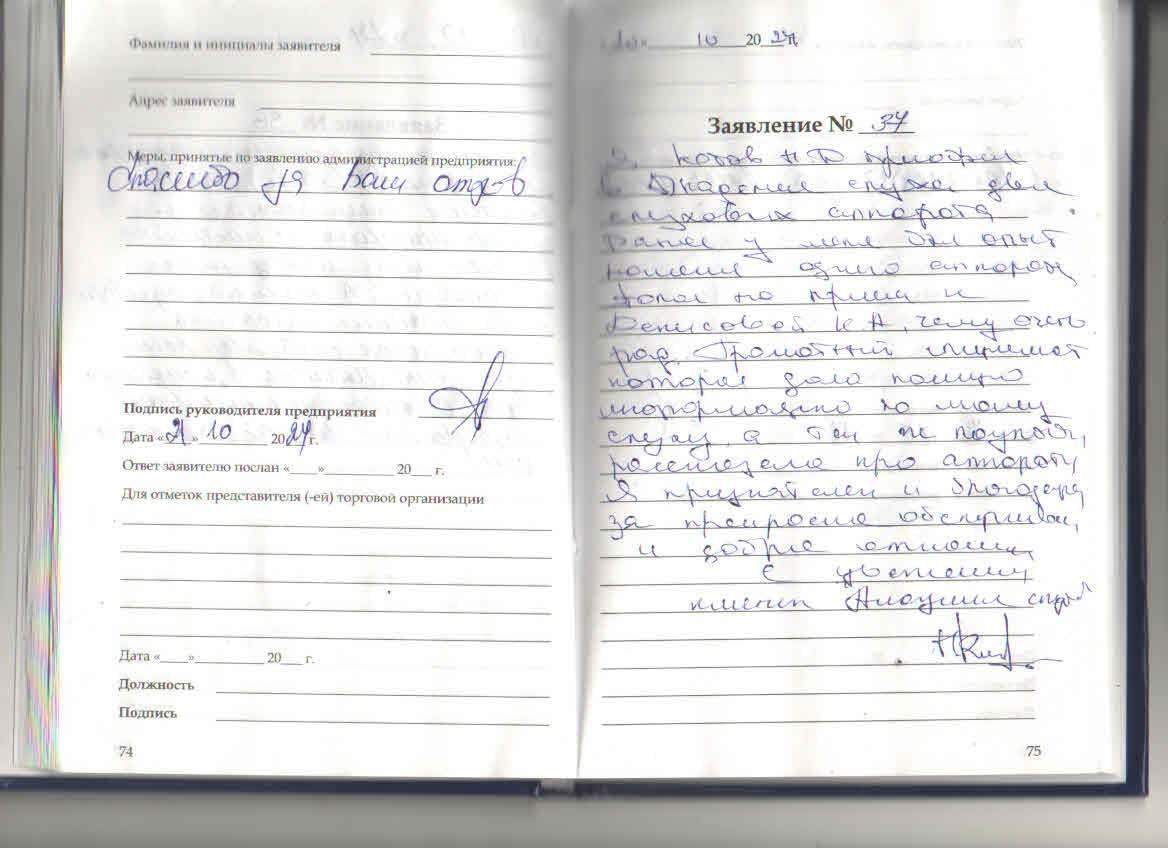 Фамилия и инициалы заявителя
Адрес заявителя
Меры, принятые по заявлению администрацией предприятия:
Спасибо за Ваш отзыв
Подпись руководителя предприятия
Дата «21» 10 2024 г.
Ответ заявителю послан «___» ______ 20__ г.
Для отметок представителя (-ей) торговой организации
Дата «___» ______ 20__ г.
Должность
Подпись
74
10 2024
Заявление № 37
Я, Котов Н Д приобрел
в Академии слуха два
слуховых аппарата
Ранее у меня был опыт
ношения одного аппарата
Попал на прием к
Денисовой К А, чему очень
рад. Грамотный специалист
которая дала полную
информацию по моему
слуху, а так же
рассказала про аппараты
Я признателен и благодарен
за прекрасное обслуживан
и доброе отношение
С уважением
клиент Академии слуха
75